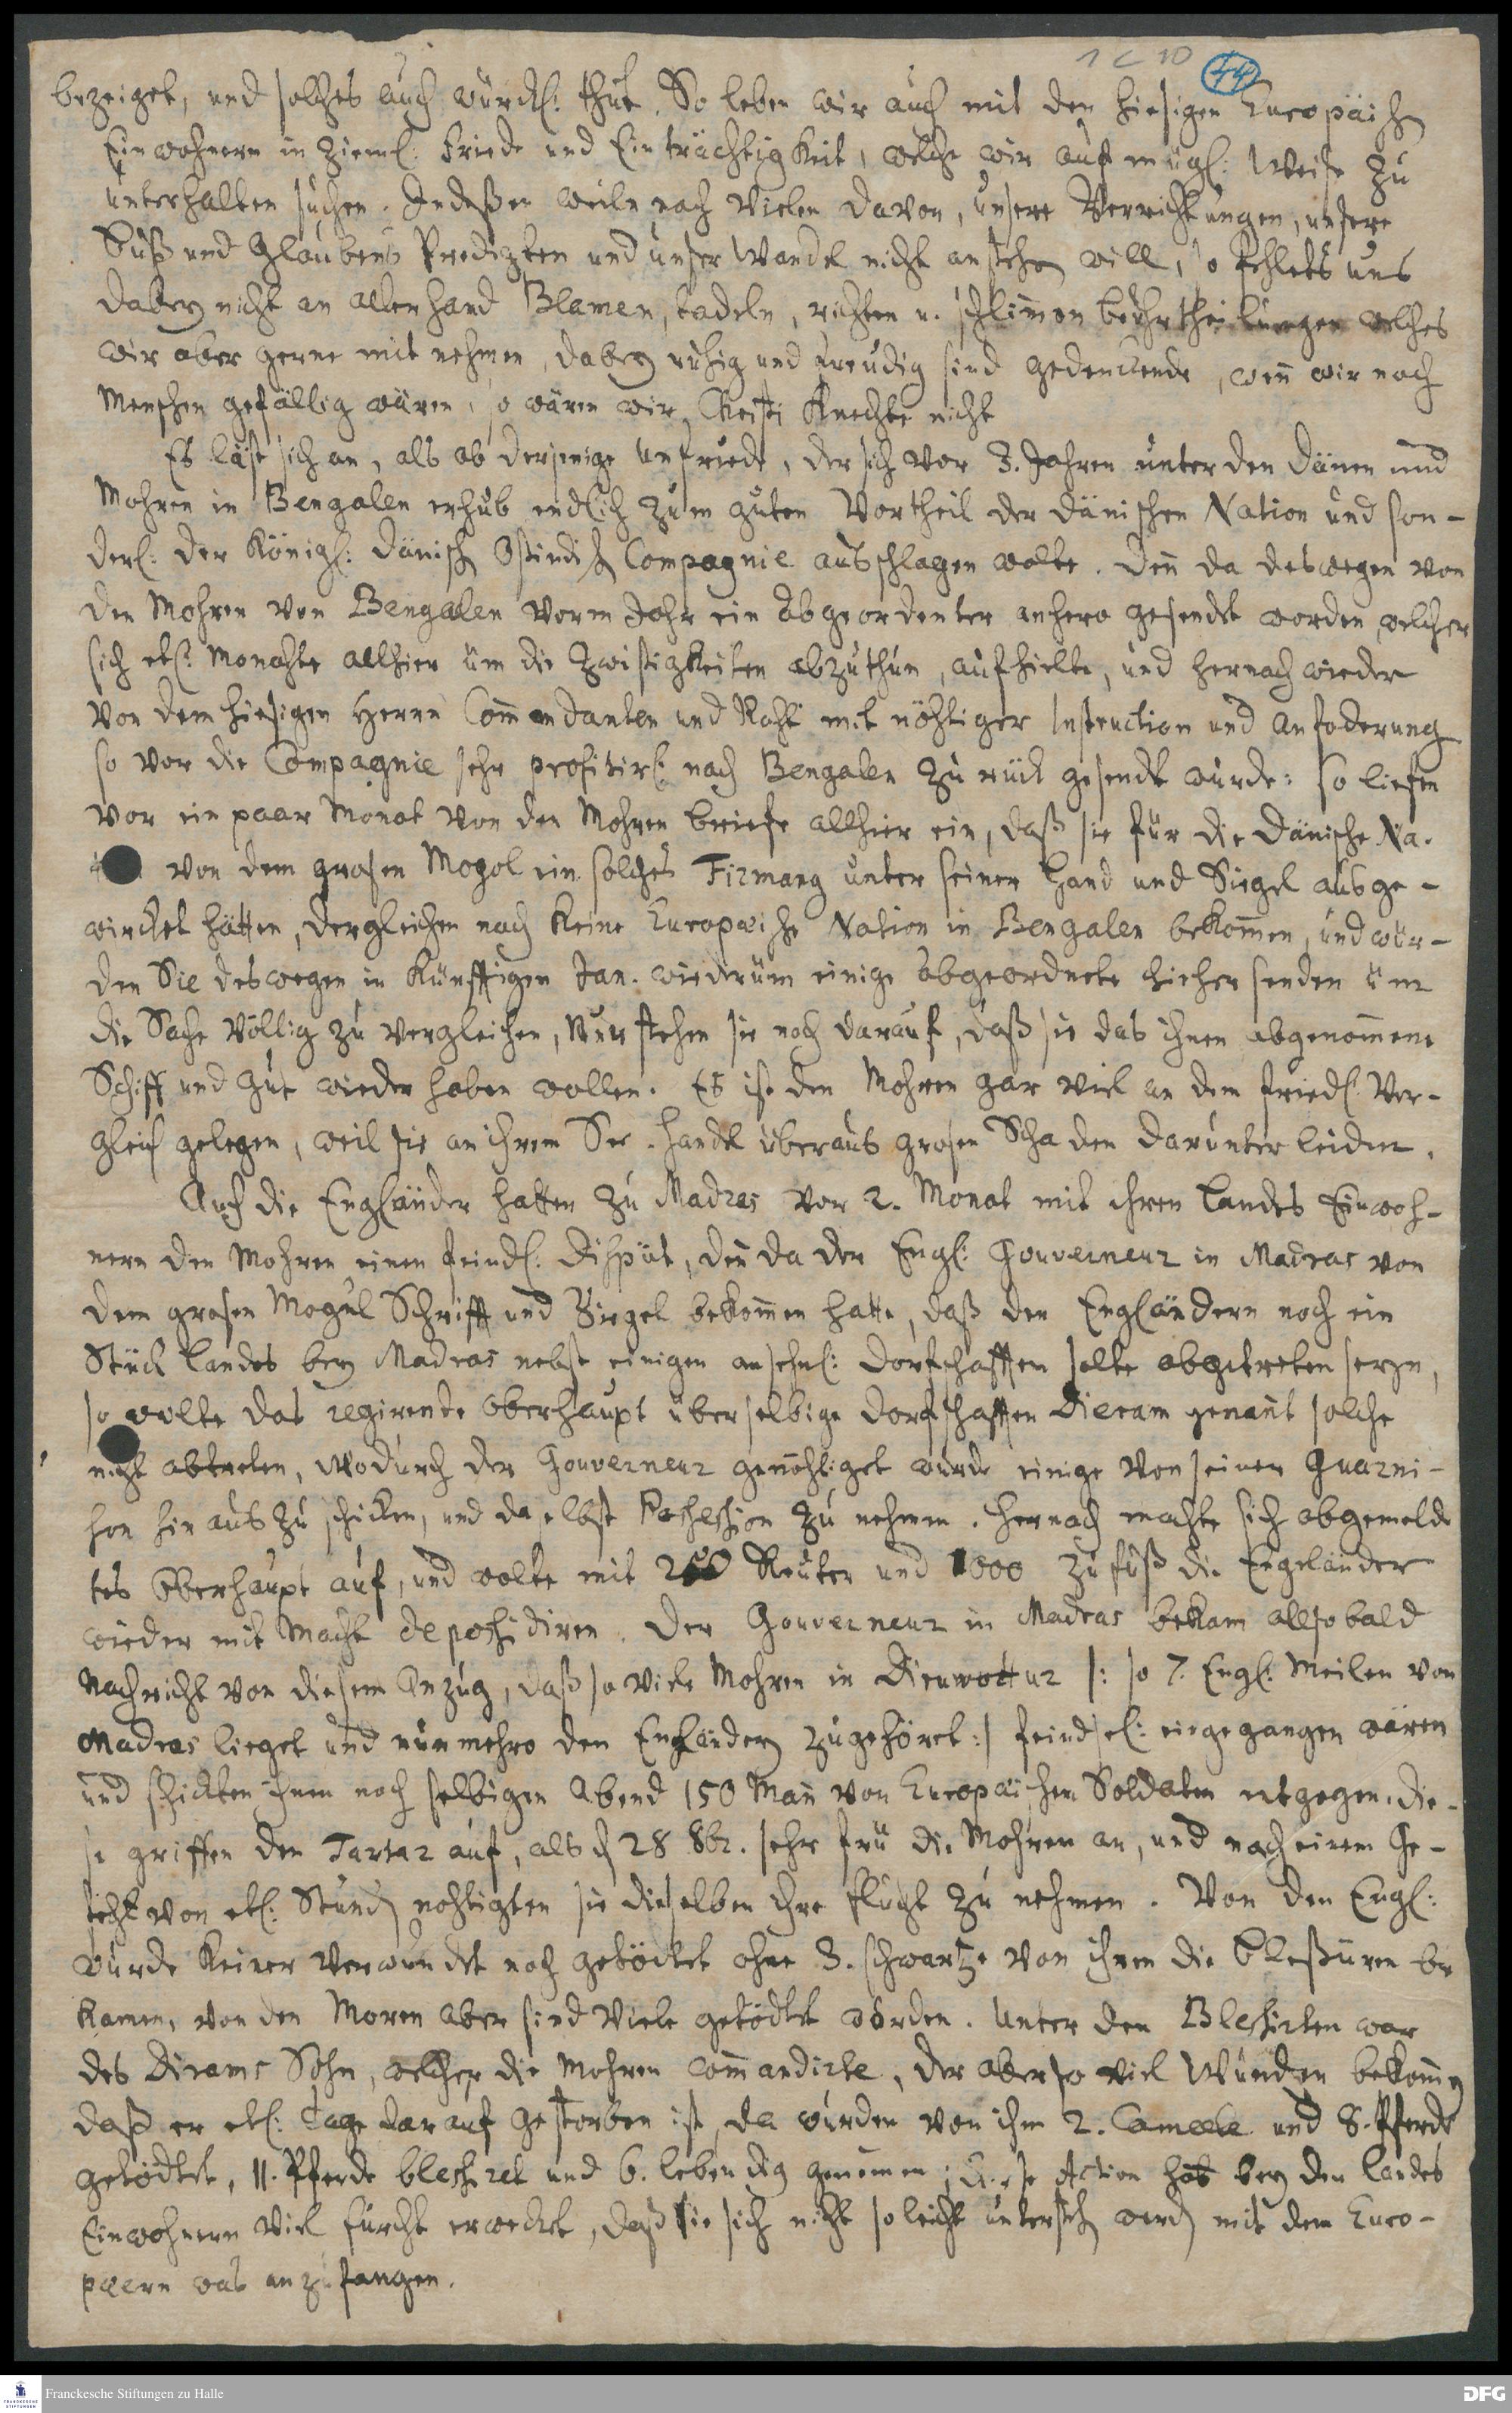 1 C 10
44
bezeiget, und solches auch würckl: thut. So leben wir auch mit den hiesigen Europäisch
Einwohnern in zieml: Friede und Einträchtigkeit, welche wir auf mügl: Weise zu
unterhalten suchen. Indeßen weiln nach vielen davon, unsere Verrichtungen, unsere
Buß und Glaubens Predigten und unser Wandel nicht anstehen will, so fehlets uns
dabey nicht an allerhand Blamen, tadeln, richten u. schlimmen beuhrtheilungen welches
wir aber gerne mit nehmen, dabey ruhig und freudig sind gedenckende, wenn wir noch
Menschen gefällig wären, so wären wir Christi Knechte nicht
Es läst sich an, als ob derjenige Unfriede, der sich vor 3. Jahren unter den Dänen und
Mohren in Bengalen erhub endlich zum guten Vortheil der dänischen Nation und son-
derl: der Königl: Dänisch Ostindisch Compagnie ausschlagen wolte. Denn da deswegen von
den Mohren von Bengalen vorm Jahr ein Abgeordenter anhero gesendet worden, welcher
sich etl: Monahte allhier üm die Zwistigkeiten abzuthun, aufhielte, und hernach wieder
von dem hiesigen Herrn Commendanten und Raht mit nöhtiger Instruction und Anfoderung
so vor die Compagnie sehr profitirl: nach Bengalen zu rück gesendet wurde: So liefen
vor ein paar Monat von den Mohren briefe allhier ein, daß sie für die Dänische Na-
von dem grosen Mogol ein solches Firmang unter seiner Hand und Siegel ausge-
wircket hätten, dergleichen noch keine Europäische Nation in Bengalen bekommen, und wür-
den Sie deswegen in künfftigen Jan. wiederum einige Abgeordnete hieher senden üm
die Sache völlig zu vergleichen, Nur stehen sie noch darauf, daß sie das ihnen abgenommene
Schiff und Gut wieder haben wollen. Es ist den Mohren gar viel an dem friedl: Ver-
gleich gelegen, weil sie an ihrem See-Handel überaus grosen Schaden darunter leiden.
Auch die Engländer hatten zu Madras vor 2. Monat mit ihren Landes Einwoh-
nern den Mohren einen feindl: Disput, den da der Engl: Gouverneur in Madras von
dem grosen Mogul Schrifft und Siegel bekommen hatte, daß den Engländern noch ein
Stück Landes bey Madras nebst einigen ansehnl: Dorfschafften solte abgetreten seyn,
so wolte das regirende Oberhaupt über selbige Dorfschafften Dieram genant solche
nicht abtreten, Wodurch der Gouverneur genöhtiget wurde einige von seiner Guarni-
son hinaus zu schicken, und daselbst Possession zu nehmen. Hernach machte sich obgemelde
tes Oberhaupt auf, und wolte mit 250 Reuter und 1000 zu fuß die Engeländer
wieder mit Macht depossidiren. Der Gouverneur in Madras bekam allsobald
Nachricht von diesem Anzug, daß so viele Mohren in Dieuwottur |: so 7. Engl: Meilen von
Madras lieget und nunmehro den Engländern zugehöret :| feindsel: eingegangen wären
und schickten ihnen noch selbigen Abend 150 Mann von Europäischen Soldaten entgegen. Die-
se griffen den Tartar auf, als d 28 8br. sehr frü die Mohren an, und nach einem Ge-
fecht von etl: Stunden nöhtigten sie dieselben ihre flucht zu nehmen. Von den Engl:
wurde keiner verwundet noch getödtet ohne 3. schwartze von ihnen die bleßuren be
kamen, von den Moren aber sind viele getödtet worden. Unter den Blessirten war
des Dirams Sohn, welcher die Mohren commandirte, der aber so viel Wunden bekommen
daß er etl: Tage darauf gestorben ist, da wurden von ihm 2. Camele und 8. Pferde
getödtet, 11. Pferde blessiret und 6. lebendig genommen; Diese Action hat bey den Landes
Einwohnern viel furcht erwecket, daß sie sich nicht so leicht unterstehn werden mit den Euro-
paeern was anzufangen.
Franckesche Stiftungen zu Halle
DFG